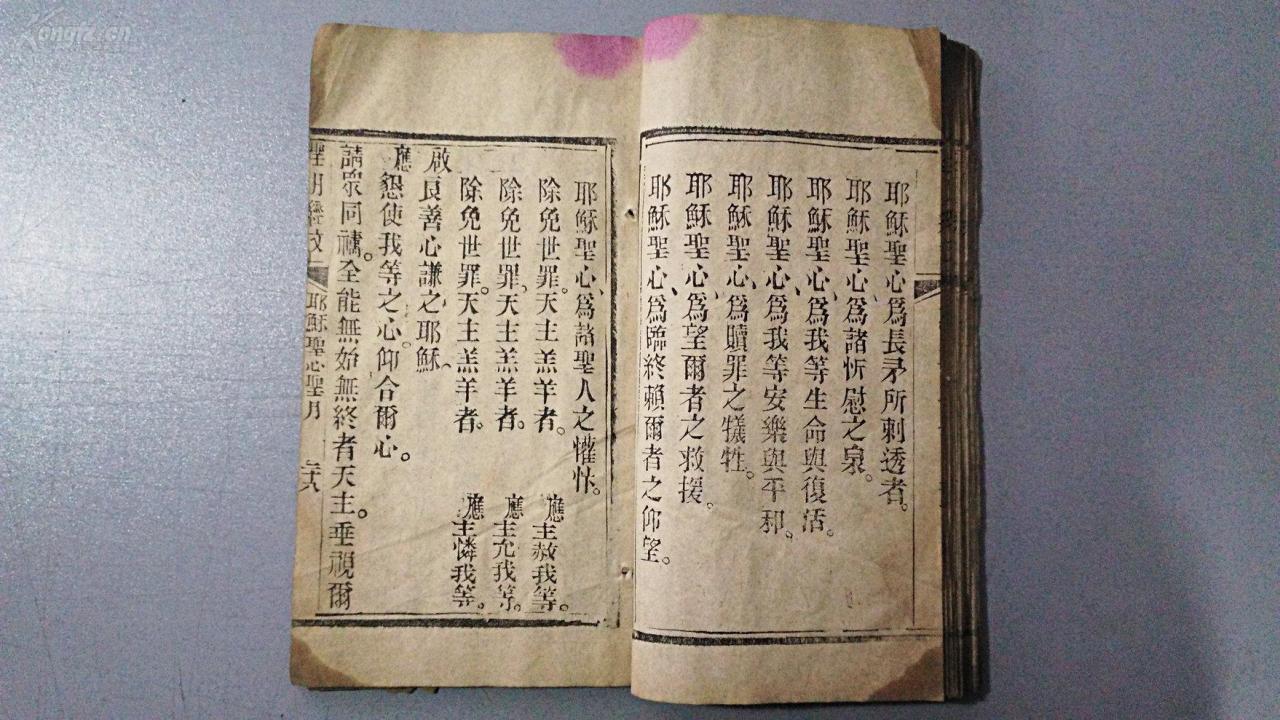 耶穌聖心、爲長矛所刺透者。
耶穌聖心、爲諸忻慰之泉。
耶穌聖心、爲我等生命與復活。
耶穌聖心、爲我等安樂與平和。
耶穌聖心、爲贖罪之犧牲。
耶穌聖心、爲望爾者之救援。
耶穌聖心、爲臨終賴爾者之仰望。
耶穌聖心、爲諸聖人之懽忭。
除免世罪。天主羔羊者。 應主赦我等。
除免世罪。天主羔羊者。 應主允我等。
除免世罪。天主羔羊者。 應主憐我等。
啟良善心謙之耶穌、
應懇使我等之心。仰合爾心。
請眾同禱。全能無始無終者天主。垂視爾
聖月經文 耶穌聖心聖月
Kongfz.cn